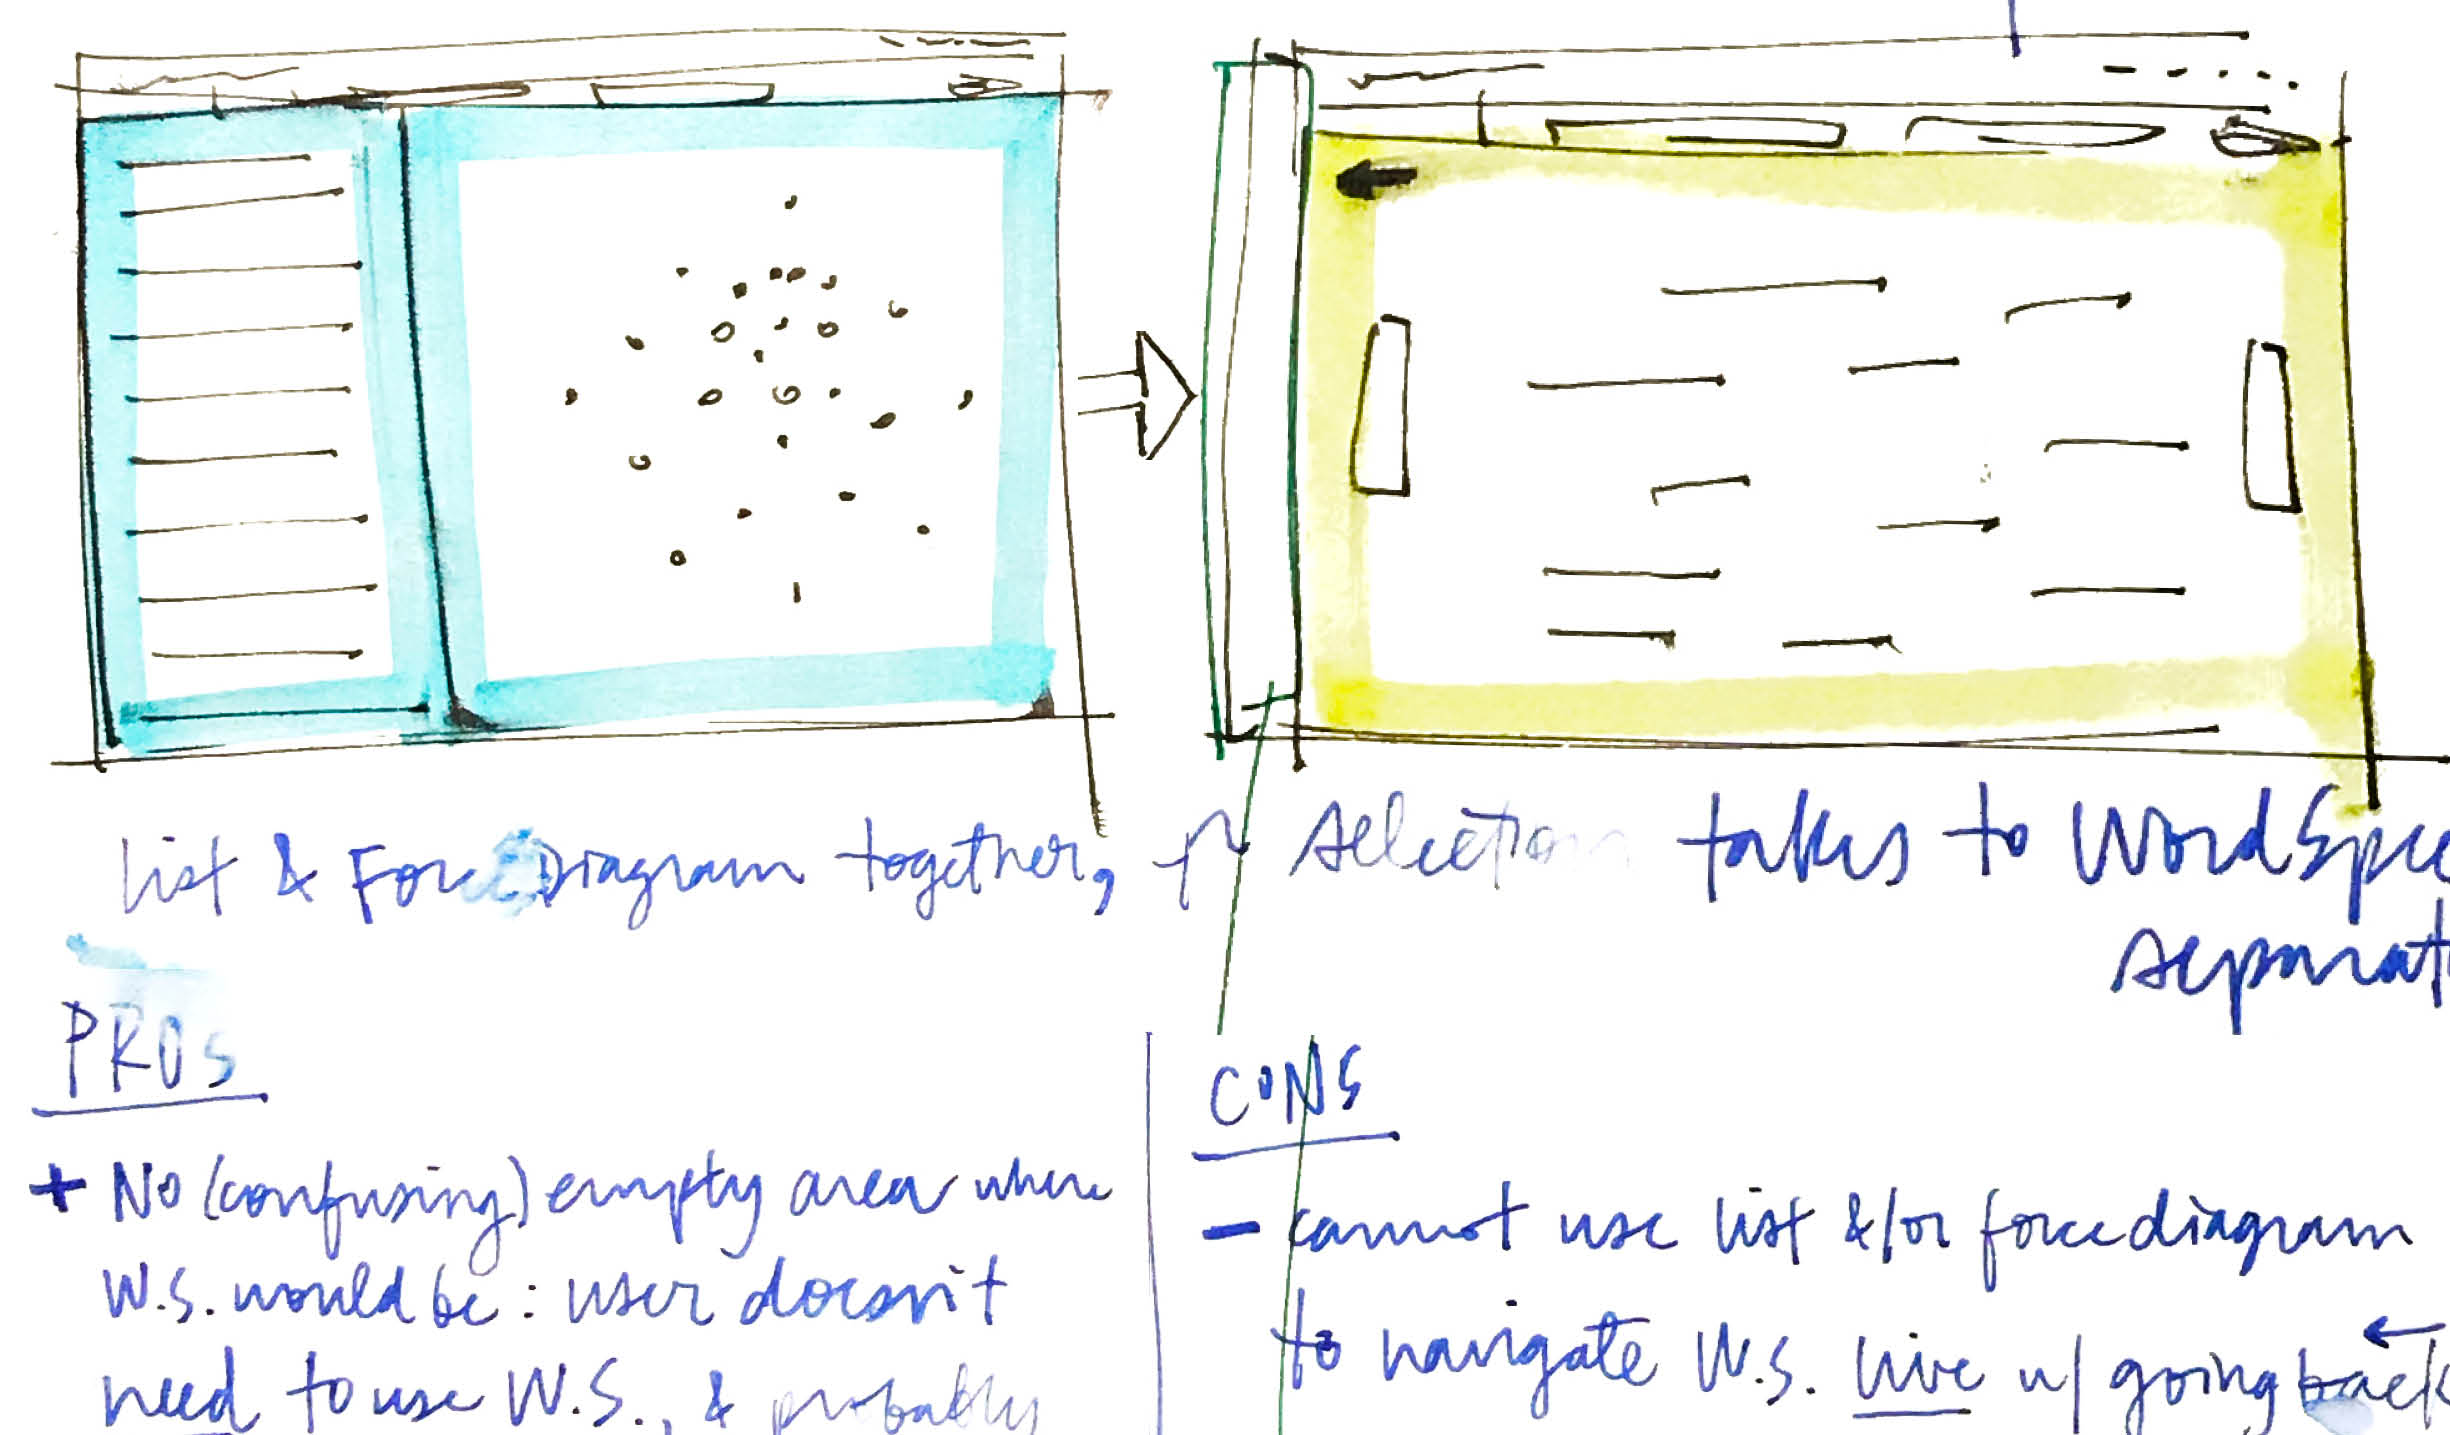 List & Force Diagram together, selection takes to WordSp
separat
PROs
+ No (confusing) empty area where
W.S. would be : user doesn't
need to use W.S., & probably
CONS
- cannot use list &/or forcediagram
to navigate W.S. live w/ going back